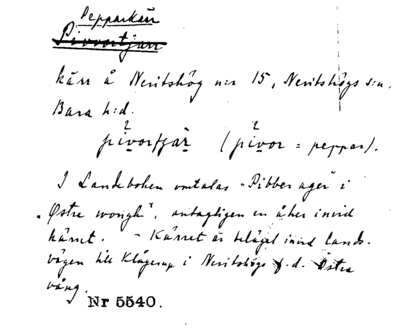 Pepparkärr
Pivvortjarr
kärr å Nevitshög n:r 15, Nevitshögs s:n.
Bara h:d.
pivortjär (pivor = peppar).
I Landboken omtalas "Pibber ager" i
"Østre wongh", antagligen en åker invid
kärret. - Kärret är beläget invid lands-
vägen till Klågerup i Nevitshögs f.d. Östra
vång.
Nr 5540.